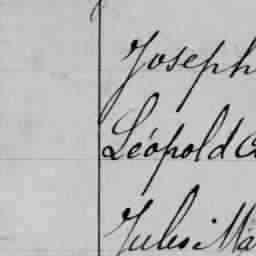 Joseph
Léopold
Jules